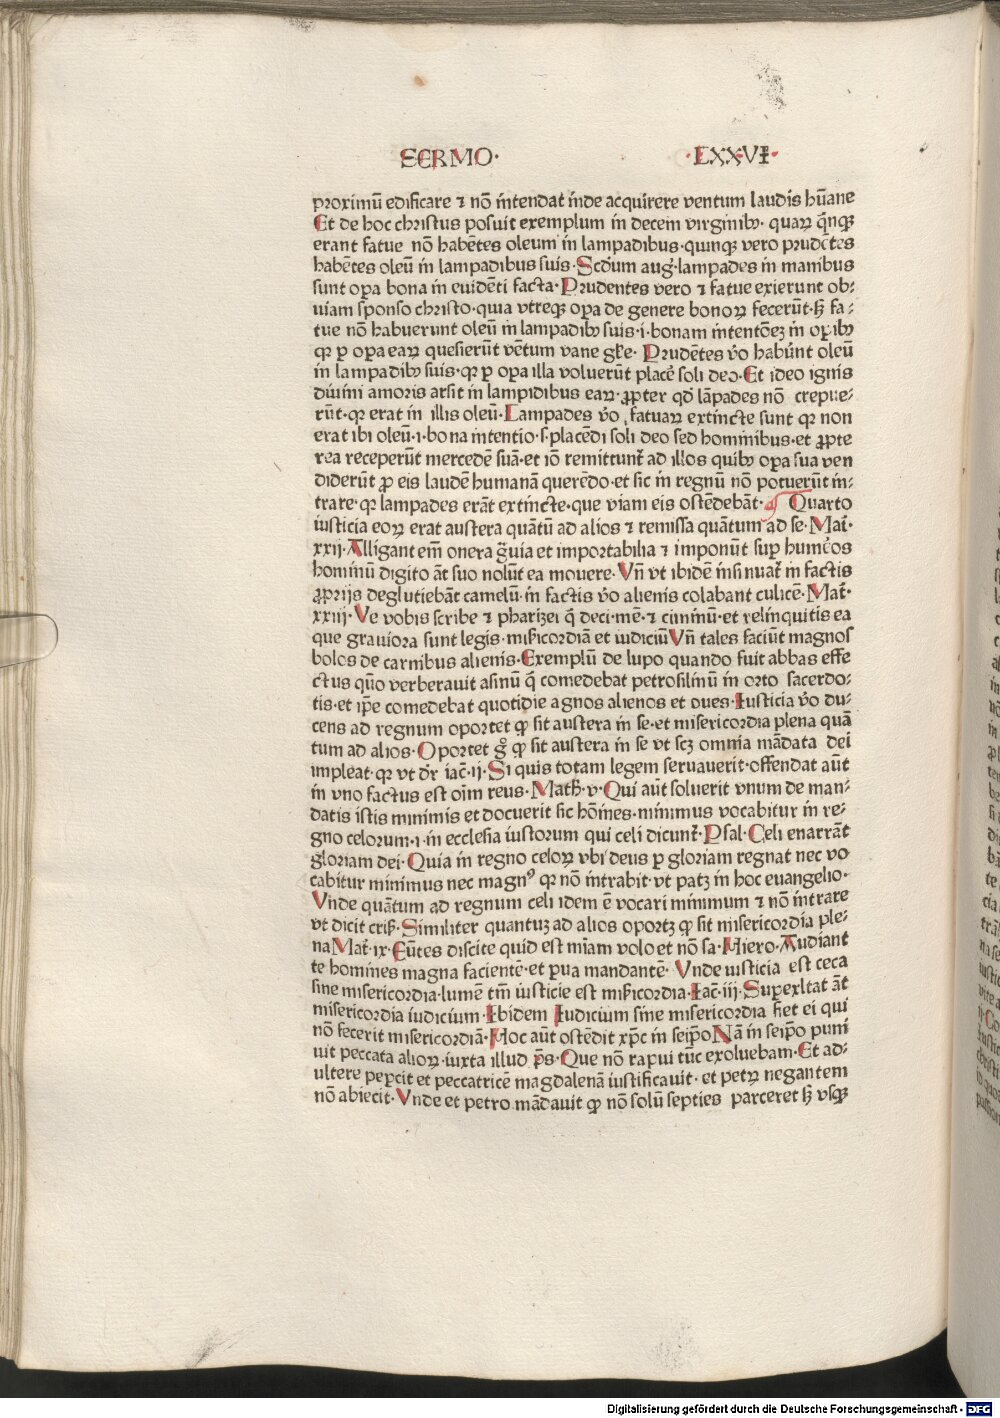 SERMO· ·LXXVI·
proximū edificare ⁊ nō intendat inde acquirere ventum laudis hūane
Et de hoc christus posuit exemplum in decem virginibꝫ· quaꝝ q̄nqꝫ
erant fatue nō habētes oleum in lampadibus·quinqꝫ vero prudētes
habētes oleū in lampadibus suis·Scd̄um aug·lampades in manibus
sunt oꝑa bona in euidēti facta·Prudentes vero ⁊ fatue exierunt ob⸗
uiam sponso christo·quia vtreqꝫ oꝑa de genere bonoꝝ fecerūt·sꝫ fa⸗
tue nō habuerunt oleū in lampadibꝫ suis·i·bonam intentōeꝫ in oꝑibꝫ
qꝛ ꝑ oꝑa eaꝝ quesierūt vētum vane gl̄ie· Prudētes v̄o habūnt oleū
in lampadibꝫ suis·qꝛ ꝑ oꝑa illa voluerūt placē soli deo·Et ideo ignis
diuini amoris arsit in lampidibus eaꝝ·ꝓpter qd̄ lāpades nō crepue⸗
rūt·qꝛ erat in illis oleū·Lampades v̄o fatuaꝝ extincte sunt qꝛ non
erat ibi oleū·i·bona intentio·s·placēdi soli deo sed hominibus·et ꝓpte
rea receperūt mercedē suā·et iō remittunt̄ ad illos quibꝫ oꝑa sua ven
diderūt ꝓ eis laudē humanā querēdo·et sic in regnū nō potuerūt in⸗
trare·qꝛ lampades erāt extincte·que viam eis ostēdebāt· ¶ Quarto
iusticia eoꝝ erat austera quātū ad alios ⁊ remissa quātum ad se·Mat̄·
xxij·Alligant em̄ onera g̃uia et importabilia ⁊ imponūt suꝑ humēos
hominū digito āt suo nolūt ea mouere·Vn̄ vt ibidē insinuat̄ in factis
ꝓprijs deglutiebāt camelū·in factis v̄o alienis colabant culicē·Mat̄·
xxiij·Ve vobis scribe et pharizei q̄ deci·mē·⁊ ciminū·et relinquitis ea
que grauiora sunt legis·mīſicordiā et iudiciū Vn̄ tales faciūt magnos
bolos de carnibus alienis·Exemplū de lupo quando fuit abbas effe
ctus quō verberauit asinū q̄ comedebat petrosilinū in orto sacerdo⸗
tis·et ip̄e comedebat quotidie agnos alienos et oues·Iusticia v̄o du⸗
cens ad regnum oportet ꝙ sit austera in se·et misericordia plena quā
tum ad alios·Oportet g̊ ꝙ sit austera in se vt scꝫ omnia mādata dei
impleat·qꝛ vt dr̄ iac̄·ij·Si quis totam legem seruauerit·offendat aūt
in vno factus est oīm reus·Math̄·v·Qui aūt soluerit vnum de man⸗
datis istis minimis et docuerit sic hōines·minimus vocabitur in re⸗
gno celorum·i·in ecclesia iustorum qui celi dicunt̄·Psal·Celi enarrāt
gloriam dei·Quia in regno celoꝝ vbi deus ꝑ gloriam regnat nec vo
cabitur minimus nec magnꝰ qꝛ nō intrabit·vt patꝫ in hoc euangelio·
Vnde quātum ad regnum celi idem ē vocari minimum ⁊ nō intrare
vt dicit cris̄·Similiter quantuꝫ ad alios oportꝫ ꝙ sit misericordia ple⸗
na Mat̄·ix·Eūtes discite quid est mīam volo et nō sa·Hiero·Audiant
te homines magna facientē·et ꝑua mandantē· Vnde iusticia est ceca
sine misericordia·lumē tm̄ iusticie est mīſicordia·Iac̄·iij·Suꝑexltat āt
misericordia iudicium·Ibidem Iudicium sine misericordia fiet ei qui
nō fecerit misericordiā·Hoc aūt ostēdit xp̄c in seip̄o Nā in seip̄o puni
uit peccata alioꝝ·iuxta illud p̄s·Que nō rapui tūc exoluebam·Et ad⸗
ultere peꝑcit et peccatricē magdalenā iustificauit·et petꝝ negantem
nō abiecit·Vnde et petro mādauit ꝙ nō solū septies parceret sꝫ vsqꝫ
Digitalisierung gefördert durch die Deutsche Forschungsgemeinschaft - DFG